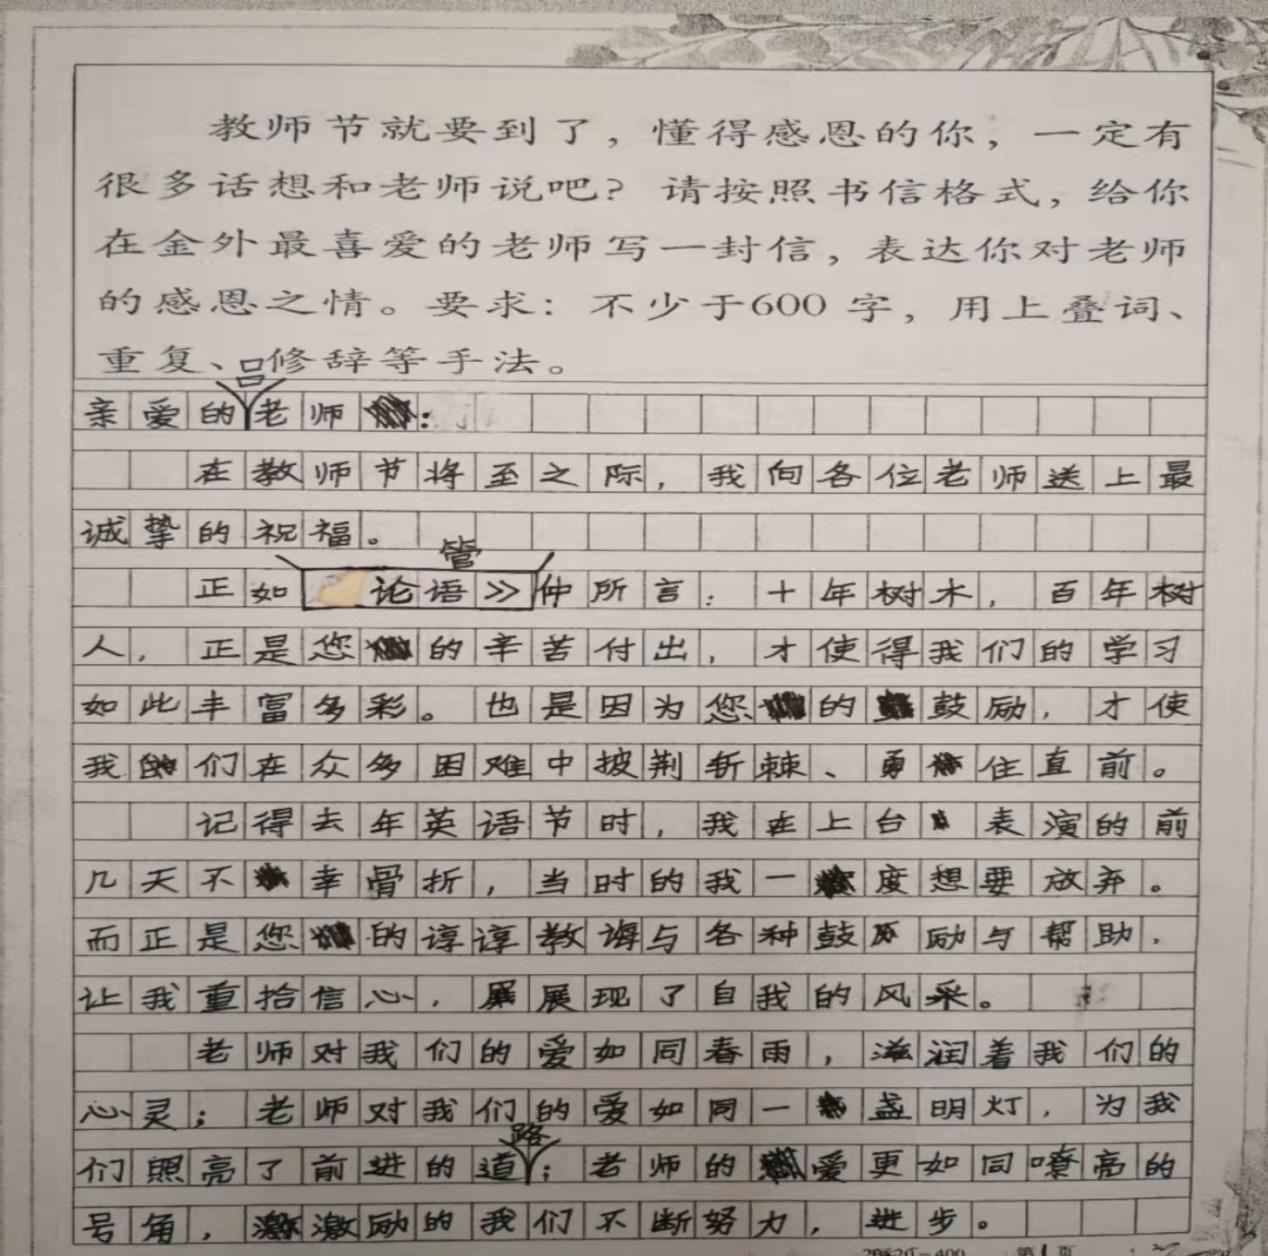 教师节就要到了，懂得感恩的你，一定有
很多话想和老师说吧？请按照书信格式，给你
在金外最喜爱的老师写一封信，表达你对老师
的感恩之情。要求：不少于600字，用上叠词、
重复、修辞等手法。
亲爱的吕老师：
在教师节将至之际，我向各位老师送上最
诚挚的祝福。
正如管仲所言：十年树木，百年树
人，正是您的辛苦付出，才使得我们的学习
如此丰富多彩。也是因为您的鼓励，才使
我们在众多困难中披荆斩棘、勇住直前。
记得去年英语节时，我在上台表演的前
几天不幸骨折，当时的我一度想要放弃。
而正是您的谆谆教诲与各种鼓励与帮助，
让我重拾信心，展现了自我的风采。
老师对我们的爱如同春雨，滋润着我们的
心灵；老师对我们的爱如同一盏明灯，为我
们照亮了前进的道路；老师的爱更如同嘹亮的
号角，激励的我们不断努力，进步。
20×20=400 第1页